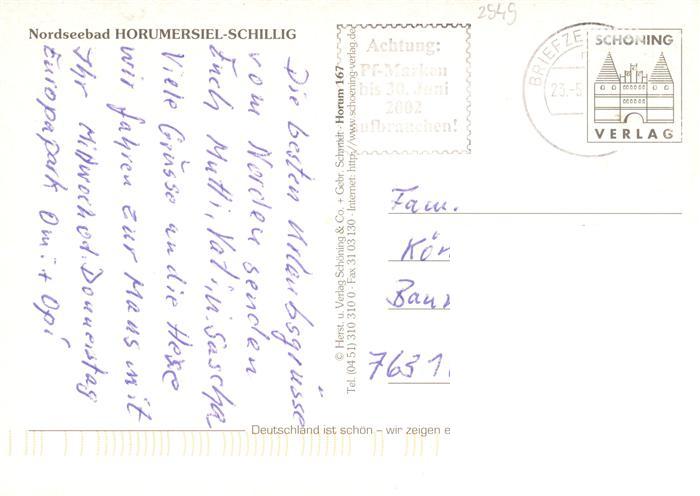 2949
Nordseebad HORUMERSIEL-SCHILLIG
Die besten Urlaubsgrüsse
vom Norden senden
Euch Mutti, Vati, u. Sascha
Viele Grüsse an die Hexe
wir fahren zur Maus mit
Ihr Mittwoch od. Donnerstag
Europapark Omi + Opi
© Herst. u. Verlag Schöning & Co. + Gebr. Schmidt · Horum 167
Tel. (04 51) 310 310 0 · Fax 31 03 130 · Internet: http://www.schoening-verlag.de
Achtung:
Pf-Marken
bis 30. Juni
2002
aufbrauchen!
BRIEFZE
23.-5
SCHÖNING
VERLAG
Fam.
Kör
Bann
7631
Deutschland ist schön – wir zeigen e